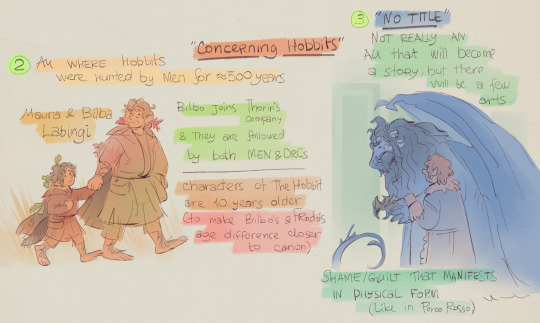 "Concerning Hobbits"
2 AU WHERE Hobbits
were Hunted by Men for ≈500 years
Maura & Bilba
Labingi
Bilbo joins Thorin's
company
& They are followed
by both MEN & ORCs
characters of The Hobbit
are 10 years older
(to make Bilbo's & Frodo's
age difference closer
to canon)
3 "NO TITLE"
NOT REALLY AN
AU that will become
a story, but there
will be a few
arts
SHAME/GUILT THAT MANIFESTS
IN PHYSICAL FORM
(Like in Porco Rosso)